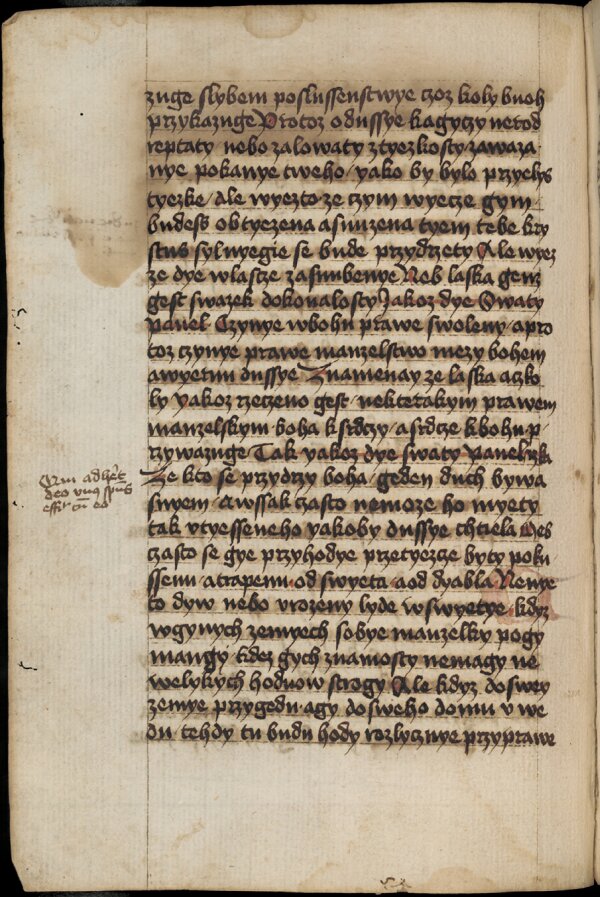 zuge slybem poslussenstwye czoz koly buoh
przykazuge Protoz o dussye kagyczy netod
reptaty nebo zalowaty ztyezkosty zawaza
nye pokanye tweho yako by bylo przyelys
tyezke Ale wyezto ze czym wyecze gym
budess obtyezena a suuzena tyem tebe kry
stus sylnyegie se bude przydrzety Ale wyez
ze dye wlascze zasnubenye Neb laska genz
gest swazek dokonalosty Jakoz dye Swaty
pawel Czynye w bohu prawe swoleny a pro
toz czynye prawe manzelstwo mezy bohem
a wyernu dussye Znamenay ze laska aczko
ly yakoz rzeczeno gest nekterakym prawem
manzelskym boha k srdczy a srdcze k bohu p
rzywazuge Tak yakoz dye swaty Panel rzka
Ze kto se przydrzy boha geden duch bywa
s nym Awssak czasto nemoze ho myety
tak vtyesseneho yakoby dussye chtiela Nes
czasto se gye przyhodye przetyezcze byty poku
ssenu a trapenu od swyeta a od dyabla Nenye
to dyw nebo vrozeny lyde w swyetye kdyz
w gynych zemyech sobye manzelky pogy
magy kdez gych znamosty nemagy ne
welykych hoduow strogy Ale kdyz do swey
zemye przygedu a gy do sweho domu vwe
du tehdy tu budu hody rozlycznye przyprawe
Qui adheret
deo vnus spiritus
efficitur cum eo